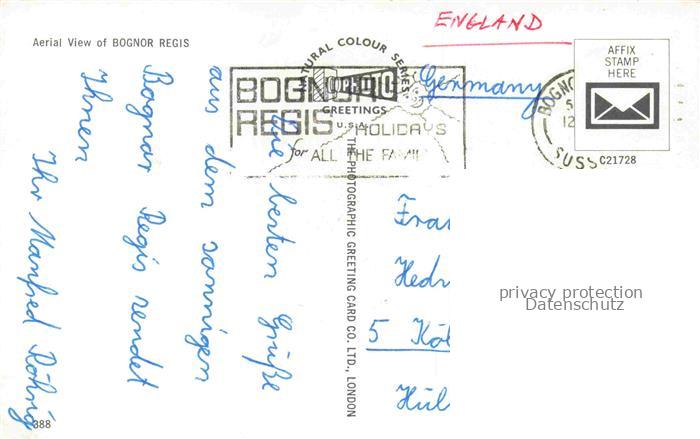 Aerial View of BOGNOR REGIS
ENGLAND
AFFIX
STAMP
HERE
C21728
NATURAL COLOUR SERIES
GREETINGS
U.S.A.
BOGNOR
REGIS
HOLIDAYS
for ALL THE FAMI
BOGNO
SUSS
Germany
THE PHOTOGRAPHIC GREETING CARD CO. LTD., LONDON
Die besten Grüße
aus dem sonnigen
Bognor Regis sendet
Ihnen
Ihr Manfred Röhrig
Frau
Hedr
5 Köl
Hül
privacy protection
Datenschutz
388